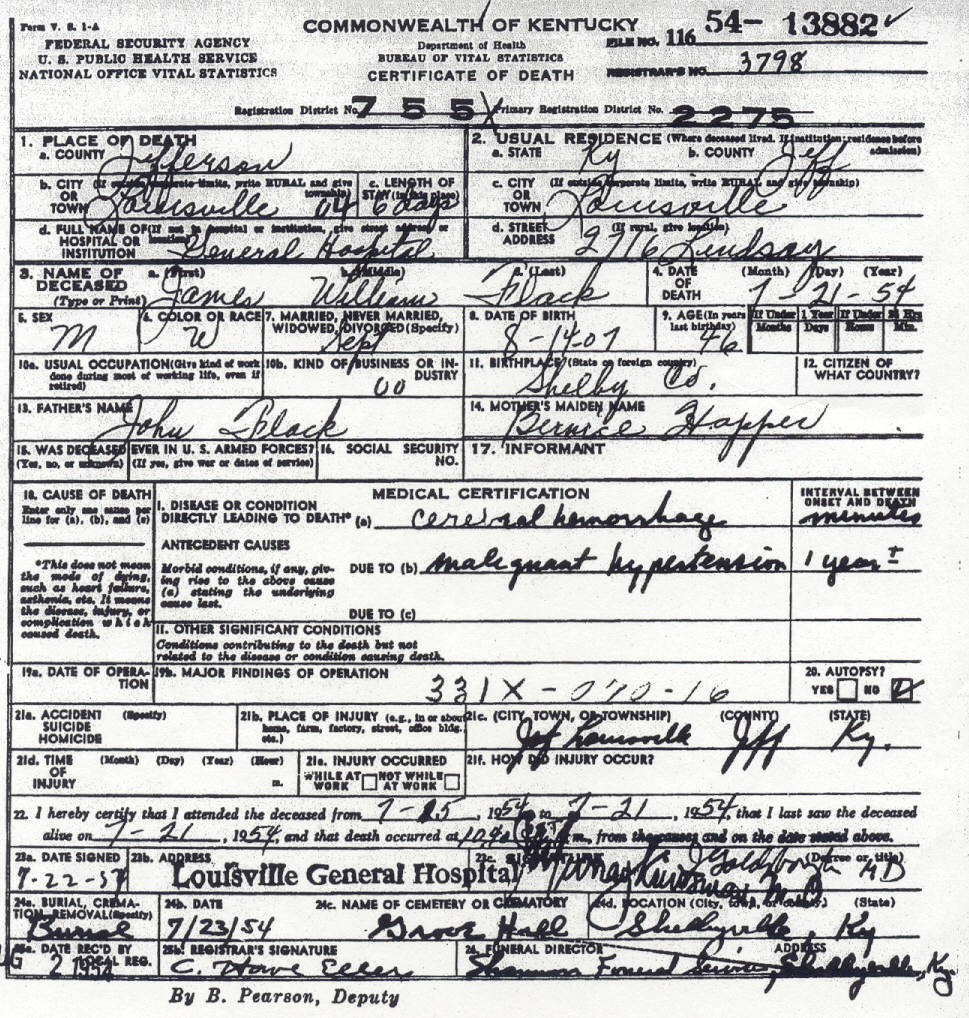 Form V. S. 1-A
COMMONWEALTH OF KENTUCKY
FEDERAL SECURITY AGENCY
U. S. PUBLIC HEALTH SERVICE
NATIONAL OFFICE VITAL STATISTICS
Department of Health
BUREAU OF VITAL STATISTICS
CERTIFICATE OF DEATH
FILE NO. 116 54- 13882
REGISTRAR'S NO. 3798
Registration District No. 755 Primary Registration District No. 2275
1. PLACE OF DEATH
a. COUNTY Jefferson
2. USUAL RESIDENCE (Where deceased lived. If institution: residence before admission)
a. STATE Ky b. COUNTY Jeff
b. CITY (If outside corporate limits, write RURAL and give township) OR TOWN Louisville 04
c. LENGTH OF STAY (in this place) 6 days
c. CITY (If outside corporate limits, write RURAL and give township) OR TOWN Louisville
d. FULL NAME OF (If not in hospital or institution, give street address or location) HOSPITAL OR INSTITUTION General Hospital
d. STREET ADDRESS (If rural, give location) 2716 Lindsay
3. NAME OF DECEASED (Type or Print) a. (First) James b. (Middle) William c. (Last) Flack
4. DATE OF DEATH (Month) (Day) (Year) 7-21-54
5. SEX M
6. COLOR OR RACE W
7. MARRIED, NEVER MARRIED, WIDOWED, DIVORCED (Specify) Sept
8. DATE OF BIRTH 8-14-07
9. AGE (In years last birthday) 46
If Under 1 Year Months Days
If Under 24 Hrs Hours Min.
10a. USUAL OCCUPATION (Give kind of work done during most of working life, even if retired)
10b. KIND OF BUSINESS OR INDUSTRY 00
11. BIRTHPLACE (State or foreign country) Shelby Co.
12. CITIZEN OF WHAT COUNTRY?
13. FATHER'S NAME John Flack
14. MOTHER'S MAIDEN NAME Bernice Happer
15. WAS DECEASED EVER IN U. S. ARMED FORCES? (Yes, no, or unknown) (If yes, give war or dates of service)
16. SOCIAL SECURITY NO.
17. INFORMANT
18. CAUSE OF DEATH
Enter only one cause per line for (a), (b), and (c)
*This does not mean the mode of dying, such as heart failure, asthenia, etc. It means the disease, injury, or complication which caused death.
MEDICAL CERTIFICATION
INTERVAL BETWEEN ONSET AND DEATH
I. DISEASE OR CONDITION DIRECTLY LEADING TO DEATH* (a) cerebral hemorrhage minutes
ANTECEDENT CAUSES
Morbid conditions, if any, giving rise to the above cause (a) stating the underlying cause last.
DUE TO (b) malignant hypertension 1 year ±
DUE TO (c)
II. OTHER SIGNIFICANT CONDITIONS
Conditions contributing to the death but not related to the disease or condition causing death.
19a. DATE OF OPERATION
19b. MAJOR FINDINGS OF OPERATION
331X-070-16
20. AUTOPSY? YES NO
21a. ACCIDENT SUICIDE HOMICIDE (Specify)
21b. PLACE OF INJURY (e.g., in or about home, farm, factory, street, office bldg. etc.)
21c. (CITY, TOWN, OR TOWNSHIP) (COUNTY) (STATE)
Louisville Jeff Ky.
21d. TIME OF INJURY (Month) (Day) (Year) (Hour) m.
21e. INJURY OCCURRED WHILE AT WORK NOT WHILE AT WORK
21f. HOW DID INJURY OCCUR?
22. I hereby certify that I attended the deceased from 7-15, 1954 to 7-21, 1954, that I last saw the deceased
alive on 7-21, 1954, and that death occurred at m., from the causes and on the date stated above.
23a. DATE SIGNED 7-22-54
23b. ADDRESS Louisville General Hospital
23c. SIGNATURE (Degree or title) MD
24a. BURIAL, CREMATION, REMOVAL (Specify) Burial
24b. DATE 7/23/54
24c. NAME OF CEMETERY OR CREMATORY Grove Hall
24d. LOCATION (City, town, or county) (State) Shelbyville, Ky
25a. DATE REC'D BY LOCAL REG. 2 1954
25b. REGISTRAR'S SIGNATURE C. Howe Eller
26. FUNERAL DIRECTOR ADDRESS Funeral Service, Shelbyville, Ky.
By B. Pearson, Deputy